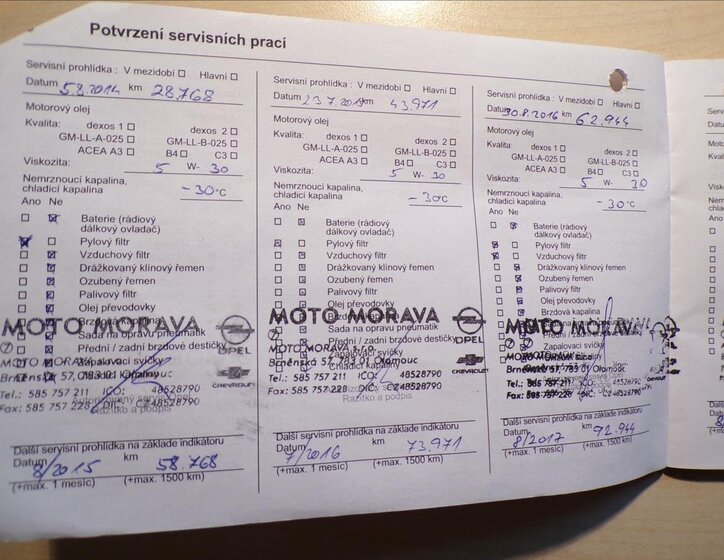 Potvrzení servisních prací
Servisní prohlídka : V mezidobí Hlavní
Datum 5.8.2014 km 28.768
Motorový olej
Kvalita: dexos 1 dexos 2
GM-LL-A-025 GM-LL-B-025
ACEA A3 B4 C3
Viskozita: 5 W- 30
Nemrznoucí kapalina,
chladicí kapalina - 30 °C
Ano Ne
Baterie (rádiový
dálkový ovladač)
Pylový filtr
Vzduchový filtr
Drážkovaný klínový řemen
Ozubený řemen
Palivový filtr
Olej převodovky
Brzdová kapalina
Sada na opravu pneumatik
Přední / zadní brzdové destičky
Zapalovací svíčky
MOTO MORAVA
OPEL
MOTO MORAVA
Brněnská 57, 783 01 Olomouc
Tel.: 585 757 211 IČO: 48528790
Fax: 585 757 228 48528790
CHEVROLET
Razítko a podpis
Další servisní prohlídka na základě indikátorů
Datum 8/2015 km 58.768
(+max. 1 měsíc) (+max. 1500 km)
Servisní prohlídka : V mezidobí Hlavní
Datum 23.7.2015 km 43.971
Motorový olej
Kvalita: dexos 1 dexos 2
GM-LL-A-025 GM-LL-B-025
ACEA A3 B4 C3
Viskozita: 5 W- 30
Nemrznoucí kapalina,
chladicí kapalina - 30 °C
Ano Ne
Baterie (rádiový
dálkový ovladač)
Pylový filtr
Vzduchový filtr
Drážkovaný klínový řemen
Ozubený řemen
Palivový filtr
Olej převodovky
Brzdová kapalina
Sada na opravu pneumatik
Přední / zadní brzdové destičky
Zapalovací svíčky
MOTO MORAVA
OPEL
MOTO MORAVA s.r.o.
Brněnská 57, 783 01 Olomouc
Tel.: 585 757 211 IČO: 48528790
Fax: 585 757 228 DIČ: CZ48528790
CHEVROLET
Razítko a podpis
Další servisní prohlídka na základě indikátorů
Datum 7/2016 km 73.971
(+max. 1 měsíc) (+max. 1500 km)
Servisní prohlídka : V mezidobí Hlavní
Datum 30.8.2016 km 62.944
Motorový olej
Kvalita: dexos 1 dexos 2
GM-LL-A-025 GM-LL-B-025
ACEA A3 B4 C3
Viskozita: 5 W- 30
Nemrznoucí kapalina,
chladicí kapalina - 30 °C
Ano Ne
Baterie (rádiový
dálkový ovladač)
Pylový filtr
Vzduchový filtr
Drážkovaný klínový řemen
Ozubený řemen
Palivový filtr
Olej převodovky
Brzdová kapalina
Zapalovací svíčky
MOTO MORAVA
Brněnská 57, 783 01 Olomouc
Tel.: 585 757 211 48528790
Fax: 585 757 228 CZ48528790
CHEVROLET
Další servisní prohlídka na základě indikátorů
Datum 8/2017 km 92.944
(+max. 1 měsíc) (+max. 1500 km)